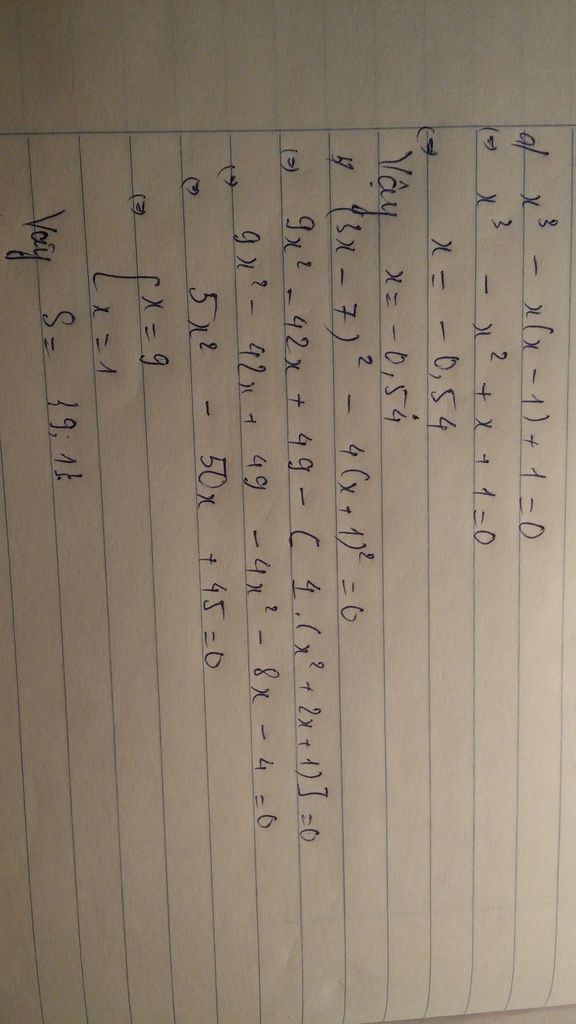 a/ x³ - x(x - 1) + 1 = 0
(=) x³ - x² + x + 1 = 0
(=) x = - 0,54
Vậy x = - 0,54
b/ (3x - 7)² - 4(x + 1)² = 0
(=) 9x² - 42x + 49 - [4.(x² + 2x + 1)] = 0
(=) 9x² - 42x + 49 - 4x² - 8x - 4 = 0
(=) 5x² - 50x + 45 = 0
(=) { x = 9
x = 1
Vậy S = {9; 1}